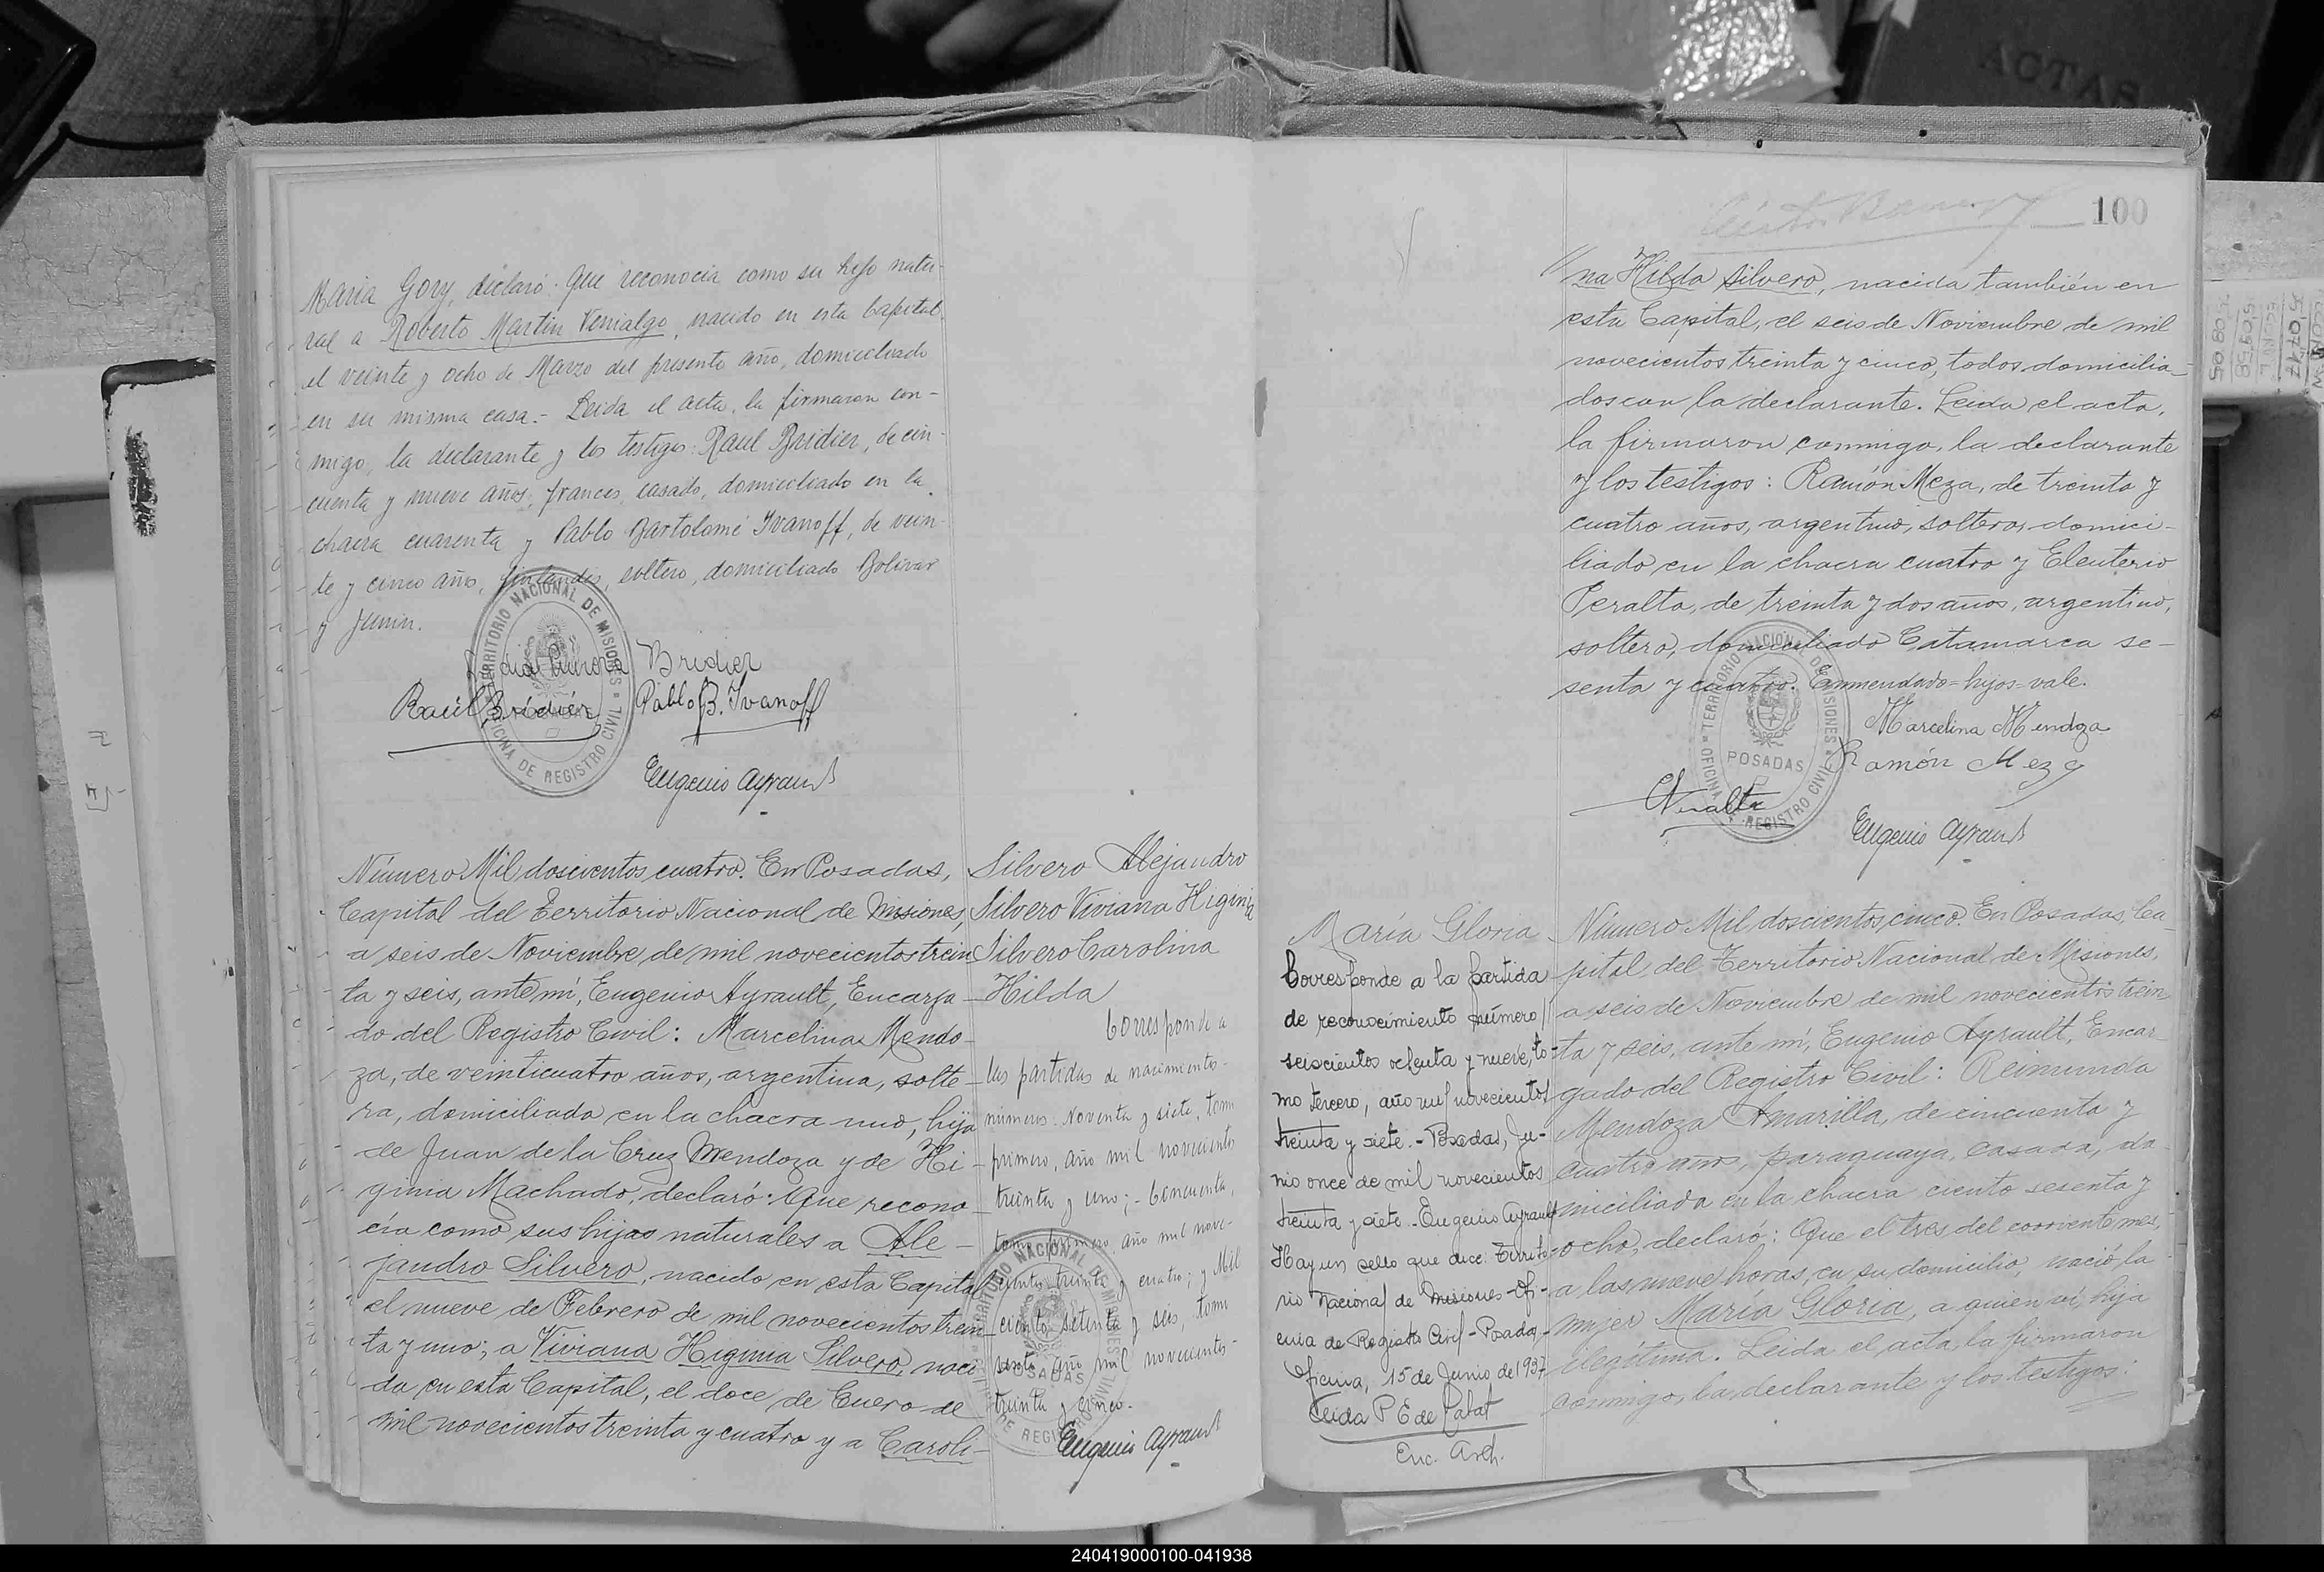 Maria Gory, declaró: Que reconocia como su hijo natu-
ral a Roberto Martin Venialgo, nacido en esta Capital
el veinte y ocho de Marzo del presente año, domiciliado
en su misma casa.- Leida el acta, la firmaron con-
migo, la declarante y los testigos: Raul Bridier, de cin-
cuenta y nueve años, frances, casado, domiciliado en la
chacra cuarenta y Pablo Bartolomé Ivanoff, de vein-
te y cinco año, finlandes, soltero, domiciliado Bolivar
y Junin.
Bridier
Raúl Bridier Pablo B. Ivanoff
Eugenio Ayrault
TERRITORIO NACIONAL DE MISIONES
OFICINA DE REGISTRO CIVIL
Número Mil doscientos cuatro. En Posadas,
Capital del Territorio Nacional de Misiones,
a seis de Noviembre de mil novecientos trein
ta y seis, ante mí, Eugenio Ayrault, Encarga-
do del Registro Civil: Marcelina Mendo-
za, de veinticuatro años, argentina, solte-
ra, domiciliada en la chacra uno, hija
de Juan de la Cruz Mendoza y de Hi-
ginia Machado, declaró: Que recono-
cía como sus hijos naturales a Ale-
jandro Silvero, nacido en esta Capital
el nueve de Febrero de mil novecientos trein
ta y uno; a Viviana Higinia Silvero, naci-
da en esta Capital, el doce de Enero de
mil novecientos treinta y cuatro y a Caroli-
Silvero Alejandro
Silvero Viviana Higinia
Silvero Carolina
Hilda
Corresponde a
las partidas de nacimientos
números: Noventa y siete, tomo
primero, año mil novecientos
treinta y uno;- Cincuenta,
tomo primero, año mil nove-
cientos treinta y cuatro; y Mil
ciento setenta y seis, tomo
sexto año mil novecientos
treinta y cinco.-
Eugenio Ayrault
TERRITORIO NACIONAL DE MISIONES
POSADAS
OFICINA DE REGISTRO CIVIL
100
// na Hilda Silvero, nacida también en
esta Capital, el seis de Noviembre de mil
novecientos treinta y cinco, todos domicilia-
dos con la declarante. Leida el acta,
la firmaron conmigo, la declarante
y los testigos: Ramón Meza, de treinta y
cuatro años, argentino, soltero, domici-
liado en la chacra cuatro y Eleuterio
Peralta, de treinta y dos años, argentino,
soltero, domiciliado Catamarca se-
senta y cuatro. Enmendado=hijos=vale.
Marcelina Mendoza
Ramón Meza
Peralta
Eugenio Ayrault
TERRITORIO NACIONAL DE MISIONES
POSADAS
OFICINA REGISTRO CIVIL
María Gloria
Corresponde a la partida
de reconocimiento número
seiscientos ochenta y nueve, to-
mo tercero, año mil novecientos
treinta y siete.- Posadas, Ju-
nio once de mil novecientos
treinta y siete.- Eugenio Ayrault
Hay un sello que dice: Territo-
rio Nacional de Misiones-Ofi-
cina de Registro Civil-Posadas
Oficina, 15 de Junio de 1937
Leida P E de
Enc. Arch.
Número Mil doscientos cinco. En Posadas, Ca-
pital del Territorio Nacional de Misiones,
a seis de Noviembre de mil novecientos trein
ta y seis, ante mí, Eugenio Ayrault, Encar-
gado del Registro Civil: Reimunda
Mendoza Amarilla, de cincuenta y
cuatro años, paraguaya, casada, do-
miciliada en la chacra ciento sesenta y
ocho, declaró: Que el tres del corriente mes,
a las nueve horas, en su domicilio, nació la
mujer María Gloria, a quien ví, hija
ilegítima. Leida el acta, la firmaron
conmigo, la declarante y los testigos:
ACTAS
240419000100-041938